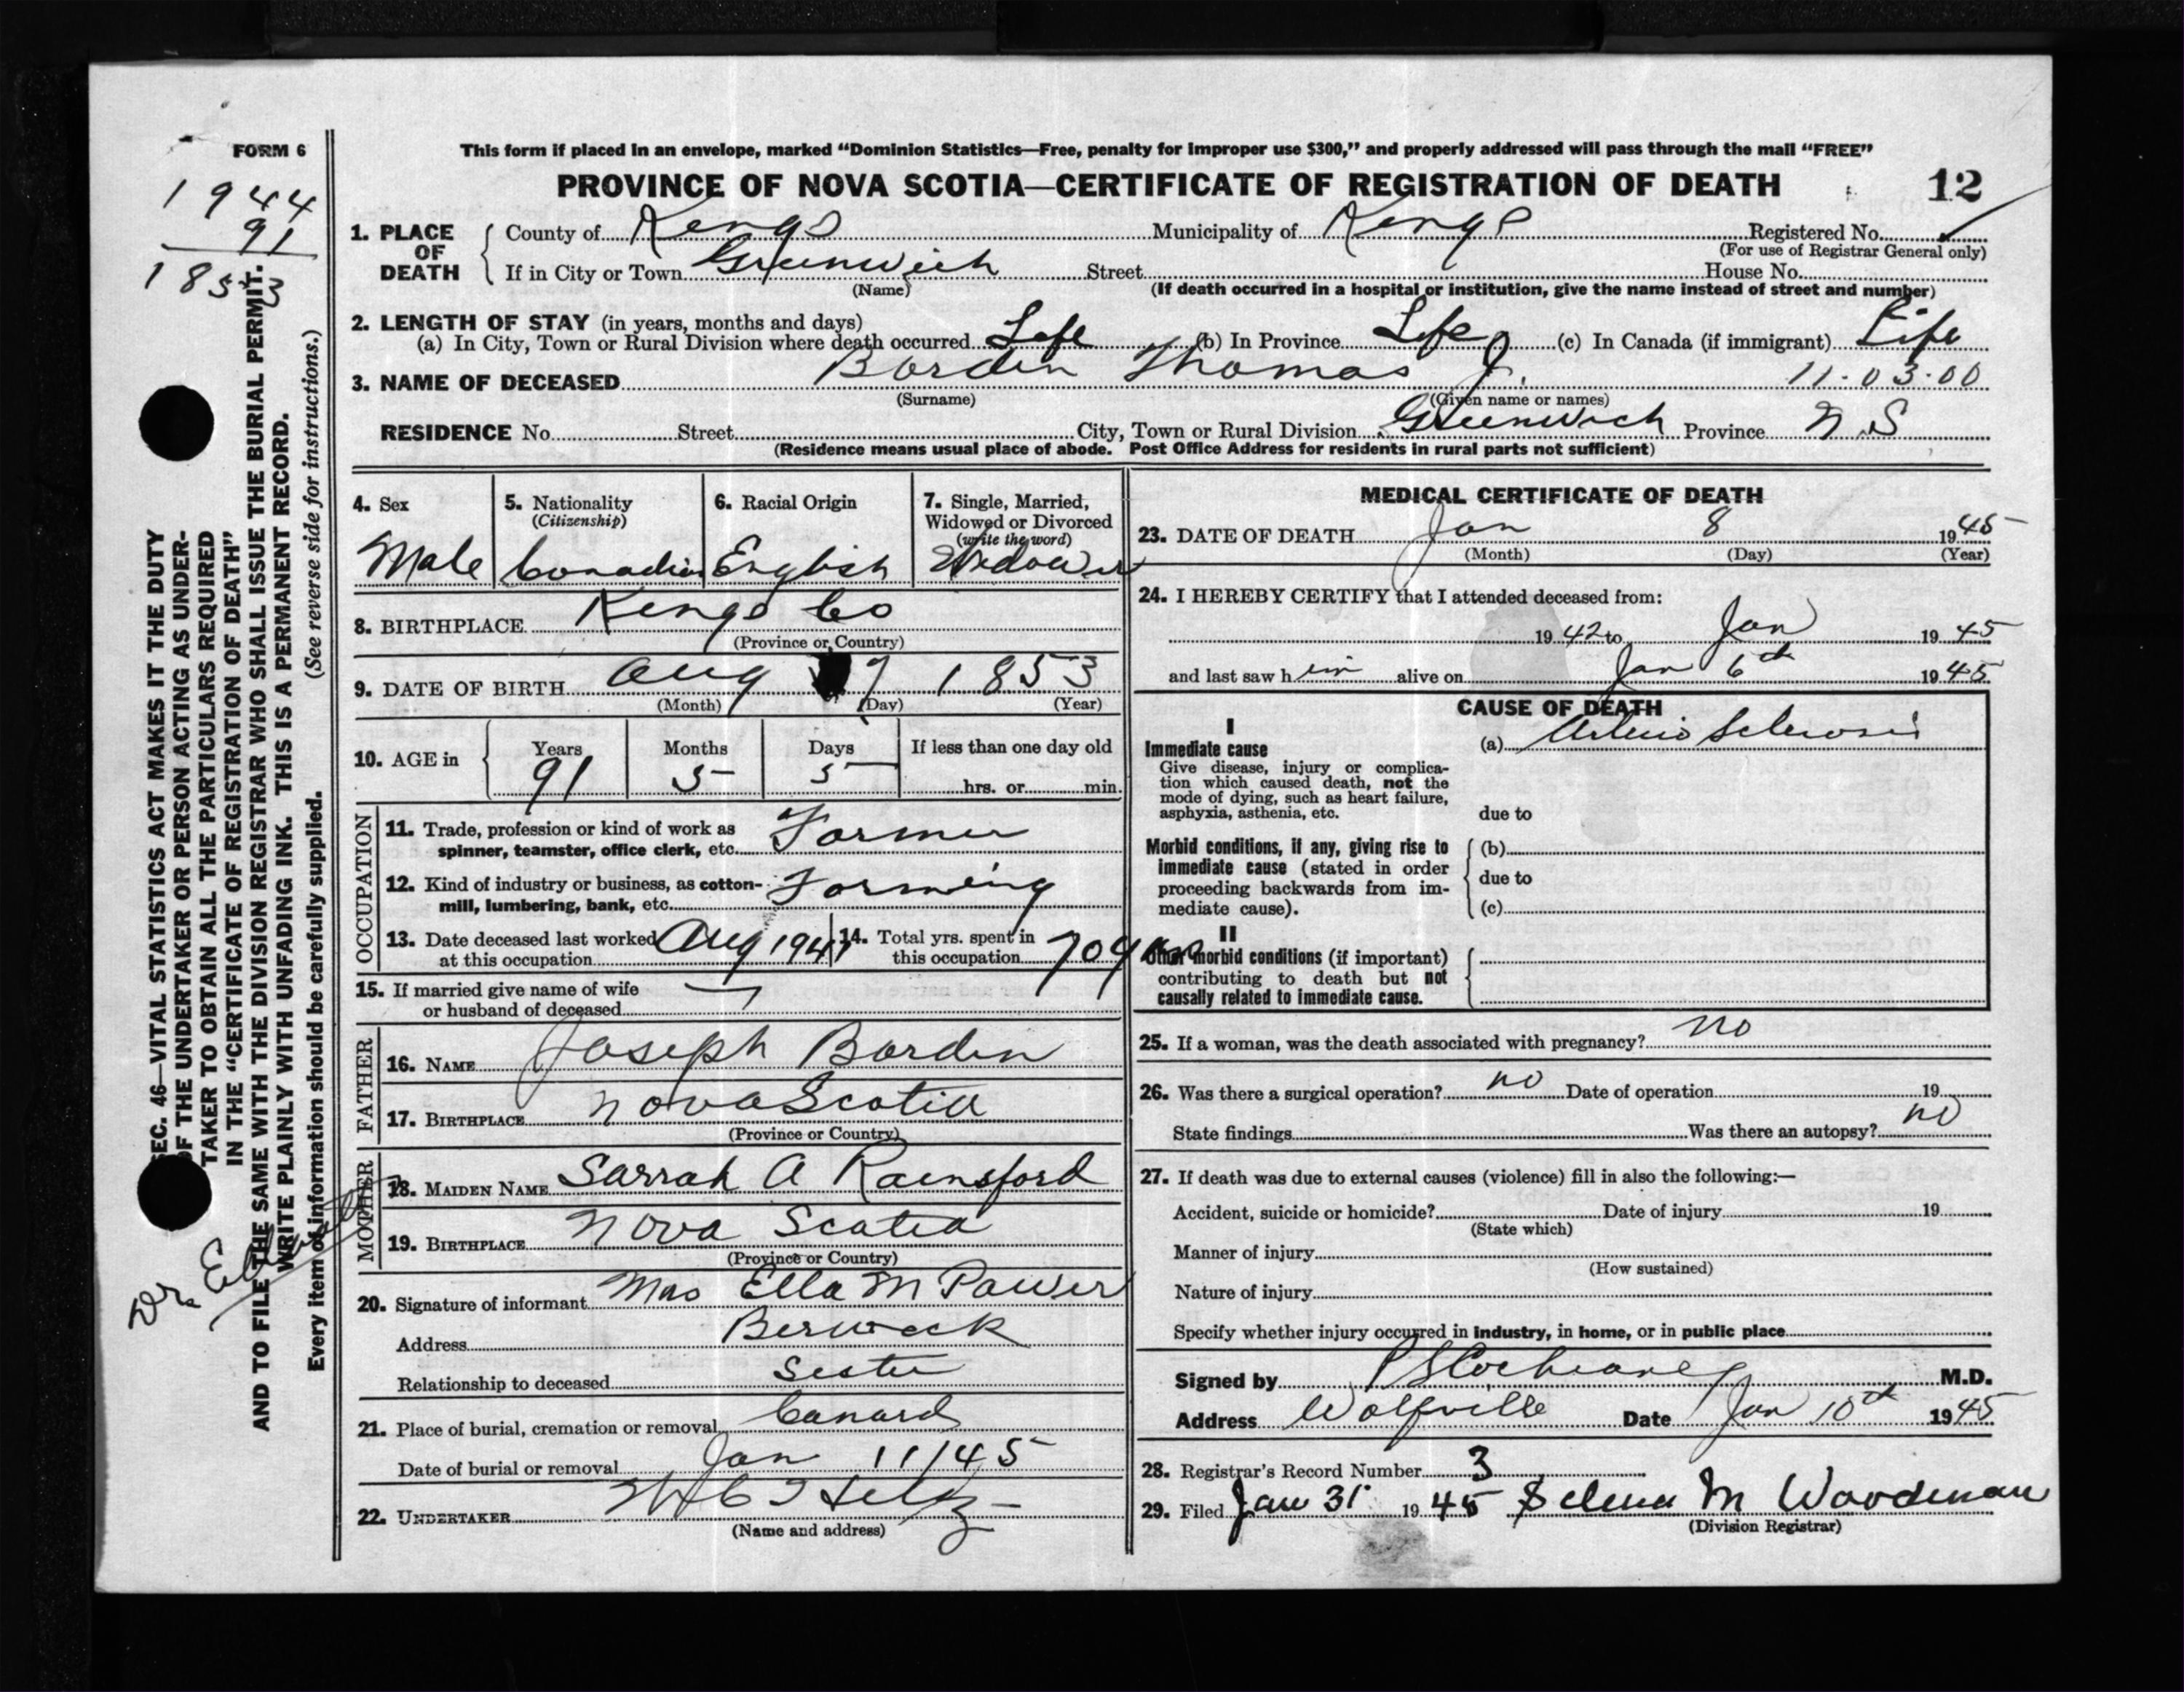 FORM 6
This form if placed in an envelope, marked “Dominion Statistics—Free, penalty for improper use $300,” and properly addressed will pass through the mail “FREE”
PROVINCE OF NOVA SCOTIA—CERTIFICATE OF REGISTRATION OF DEATH 12
1944
91
1853
1. PLACE OF DEATH County of Kings Municipality of Kings Registered No.
(For use of Registrar General only)
If in City or Town Greenwich Street House No.
(Name) (If death occurred in a hospital or institution, give the name instead of street and number)
2. LENGTH OF STAY (in years, months and days)
(a) In City, Town or Rural Division where death occurred Life (b) In Province Life (c) In Canada (if immigrant) Life
3. NAME OF DECEASED Borden Thomas J. 11-03-00
(Surname) (Given name or names)
RESIDENCE No. Street City, Town or Rural Division Greenwich Province N.S
(Residence means usual place of abode. Post Office Address for residents in rural parts not sufficient)
4. Sex 5. Nationality (Citizenship) 6. Racial Origin 7. Single, Married, Widowed or Divorced (write the word)
Male Canadian English Widower
8. BIRTHPLACE Kings Co
(Province or Country)
9. DATE OF BIRTH Aug 7 1853
(Month) (Day) (Year)
10. AGE in Years Months Days If less than one day old
91 5 5 hrs. or min.
OCCUPATION
11. Trade, profession or kind of work as
spinner, teamster, office clerk, etc. Farmer
12. Kind of industry or business, as cotton-
mill, lumbering, bank, etc. Farming
13. Date deceased last worked
at this occupation Aug 1941
14. Total yrs. spent in
this occupation 70 yrs
15. If married give name of wife
or husband of deceased
FATHER
16. NAME Joseph Borden
17. BIRTHPLACE Nova Scotia
(Province or Country)
MOTHER
18. MAIDEN NAME Sarrah A Rainsford
19. BIRTHPLACE Nova Scotia
(Province or Country)
20. Signature of informant Mrs Ella M Pawser
Address Berwick
Relationship to deceased Sister
21. Place of burial, cremation or removal Canard
Date of burial or removal Jan 11/45
22. UNDERTAKER
(Name and address)
MEDICAL CERTIFICATE OF DEATH
23. DATE OF DEATH Jan 8 1945
(Month) (Day) (Year)
24. I HEREBY CERTIFY that I attended deceased from:
1942 to Jan 1945
and last saw h im alive on Jan 6th 1945
CAUSE OF DEATH
I
Immediate cause
Give disease, injury or complica-
tion which caused death, not the
mode of dying, such as heart failure,
asphyxia, asthenia, etc.
(a) Arterio Sclerosis
due to
Morbid conditions, if any, giving rise to
immediate cause (stated in order
proceeding backwards from im-
mediate cause).
(b)
due to
(c)
II
Other morbid conditions (if important)
contributing to death but not
causally related to immediate cause.
25. If a woman, was the death associated with pregnancy? no
26. Was there a surgical operation? no Date of operation 19
State findings Was there an autopsy? no
27. If death was due to external causes (violence) fill in also the following:—
Accident, suicide or homicide? Date of injury 19
(State which)
Manner of injury
(How sustained)
Nature of injury
Specify whether injury occurred in industry, in home, or in public place
Signed by P S Cochrane M.D.
Address Wolfville Date Jan 10th 1945
28. Registrar's Record Number 3
29. Filed Jan 31 1945 Selena M Woodman
(Division Registrar)
SEC. 46—VITAL STATISTICS ACT MAKES IT THE DUTY
OF THE UNDERTAKER OR PERSON ACTING AS UNDER-
TAKER TO OBTAIN ALL THE PARTICULARS REQUIRED
IN THE “CERTIFICATE OF REGISTRATION OF DEATH”
AND TO FILE THE SAME WITH THE DIVISION REGISTRAR WHO SHALL ISSUE THE BURIAL PERMIT.
WRITE PLAINLY WITH UNFADING INK. THIS IS A PERMANENT RECORD.
Every item of information should be carefully supplied. (See reverse side for instructions.)
Dr.